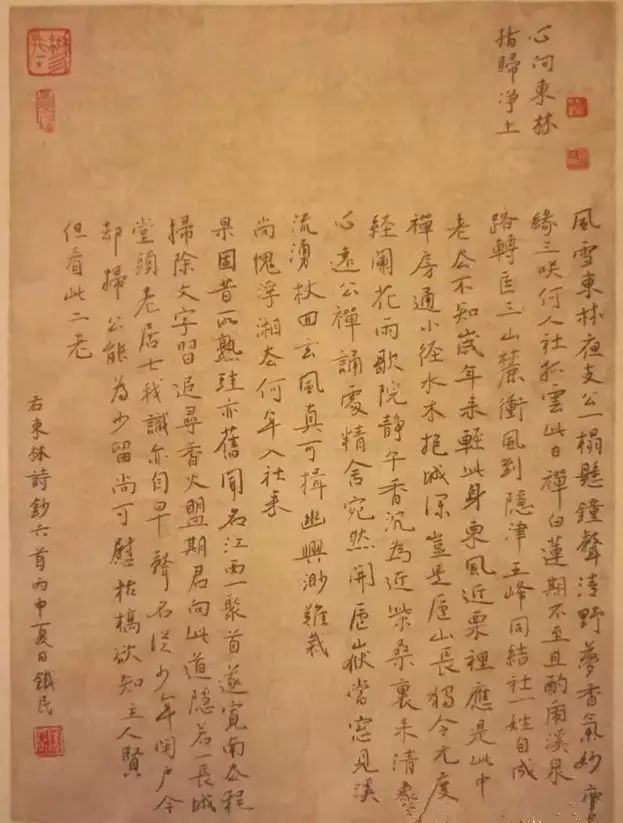 心向東林
指歸净土
風雪東林夜支公一榻懸鐘聲清野夢香氣妙
緣三咲何人社孤雲此日禪白蓮期不至且酌雨溪泉
路轉匡三山麓衝風到隱津五峰同結社一姓自成
老去不知歲年来輕此身東風近栗裡應是此中
禪房通小径水木抱城深豈是廬山長獨令元度
経闌花雨歇院静午香沉為近柴桑裏来清
心遠公禪誦處精舍宛然開廬嶽當窓見溪
流湧杖回玄風真可揖幽興渺難裁
尚愧浮湘去何年入社来
果因昔所熟珪亦舊聞名江西一聚首遂寬南去程
掃除文字習追尋香火盟期君向此道隱若一長城
堂頭老居士我識亦自早聲名従少年閉户今
却掃公能為少留尚可慰枯槁欲知主人賢
但看此二老
右東林詩鈔六首丙申夏日鎮民